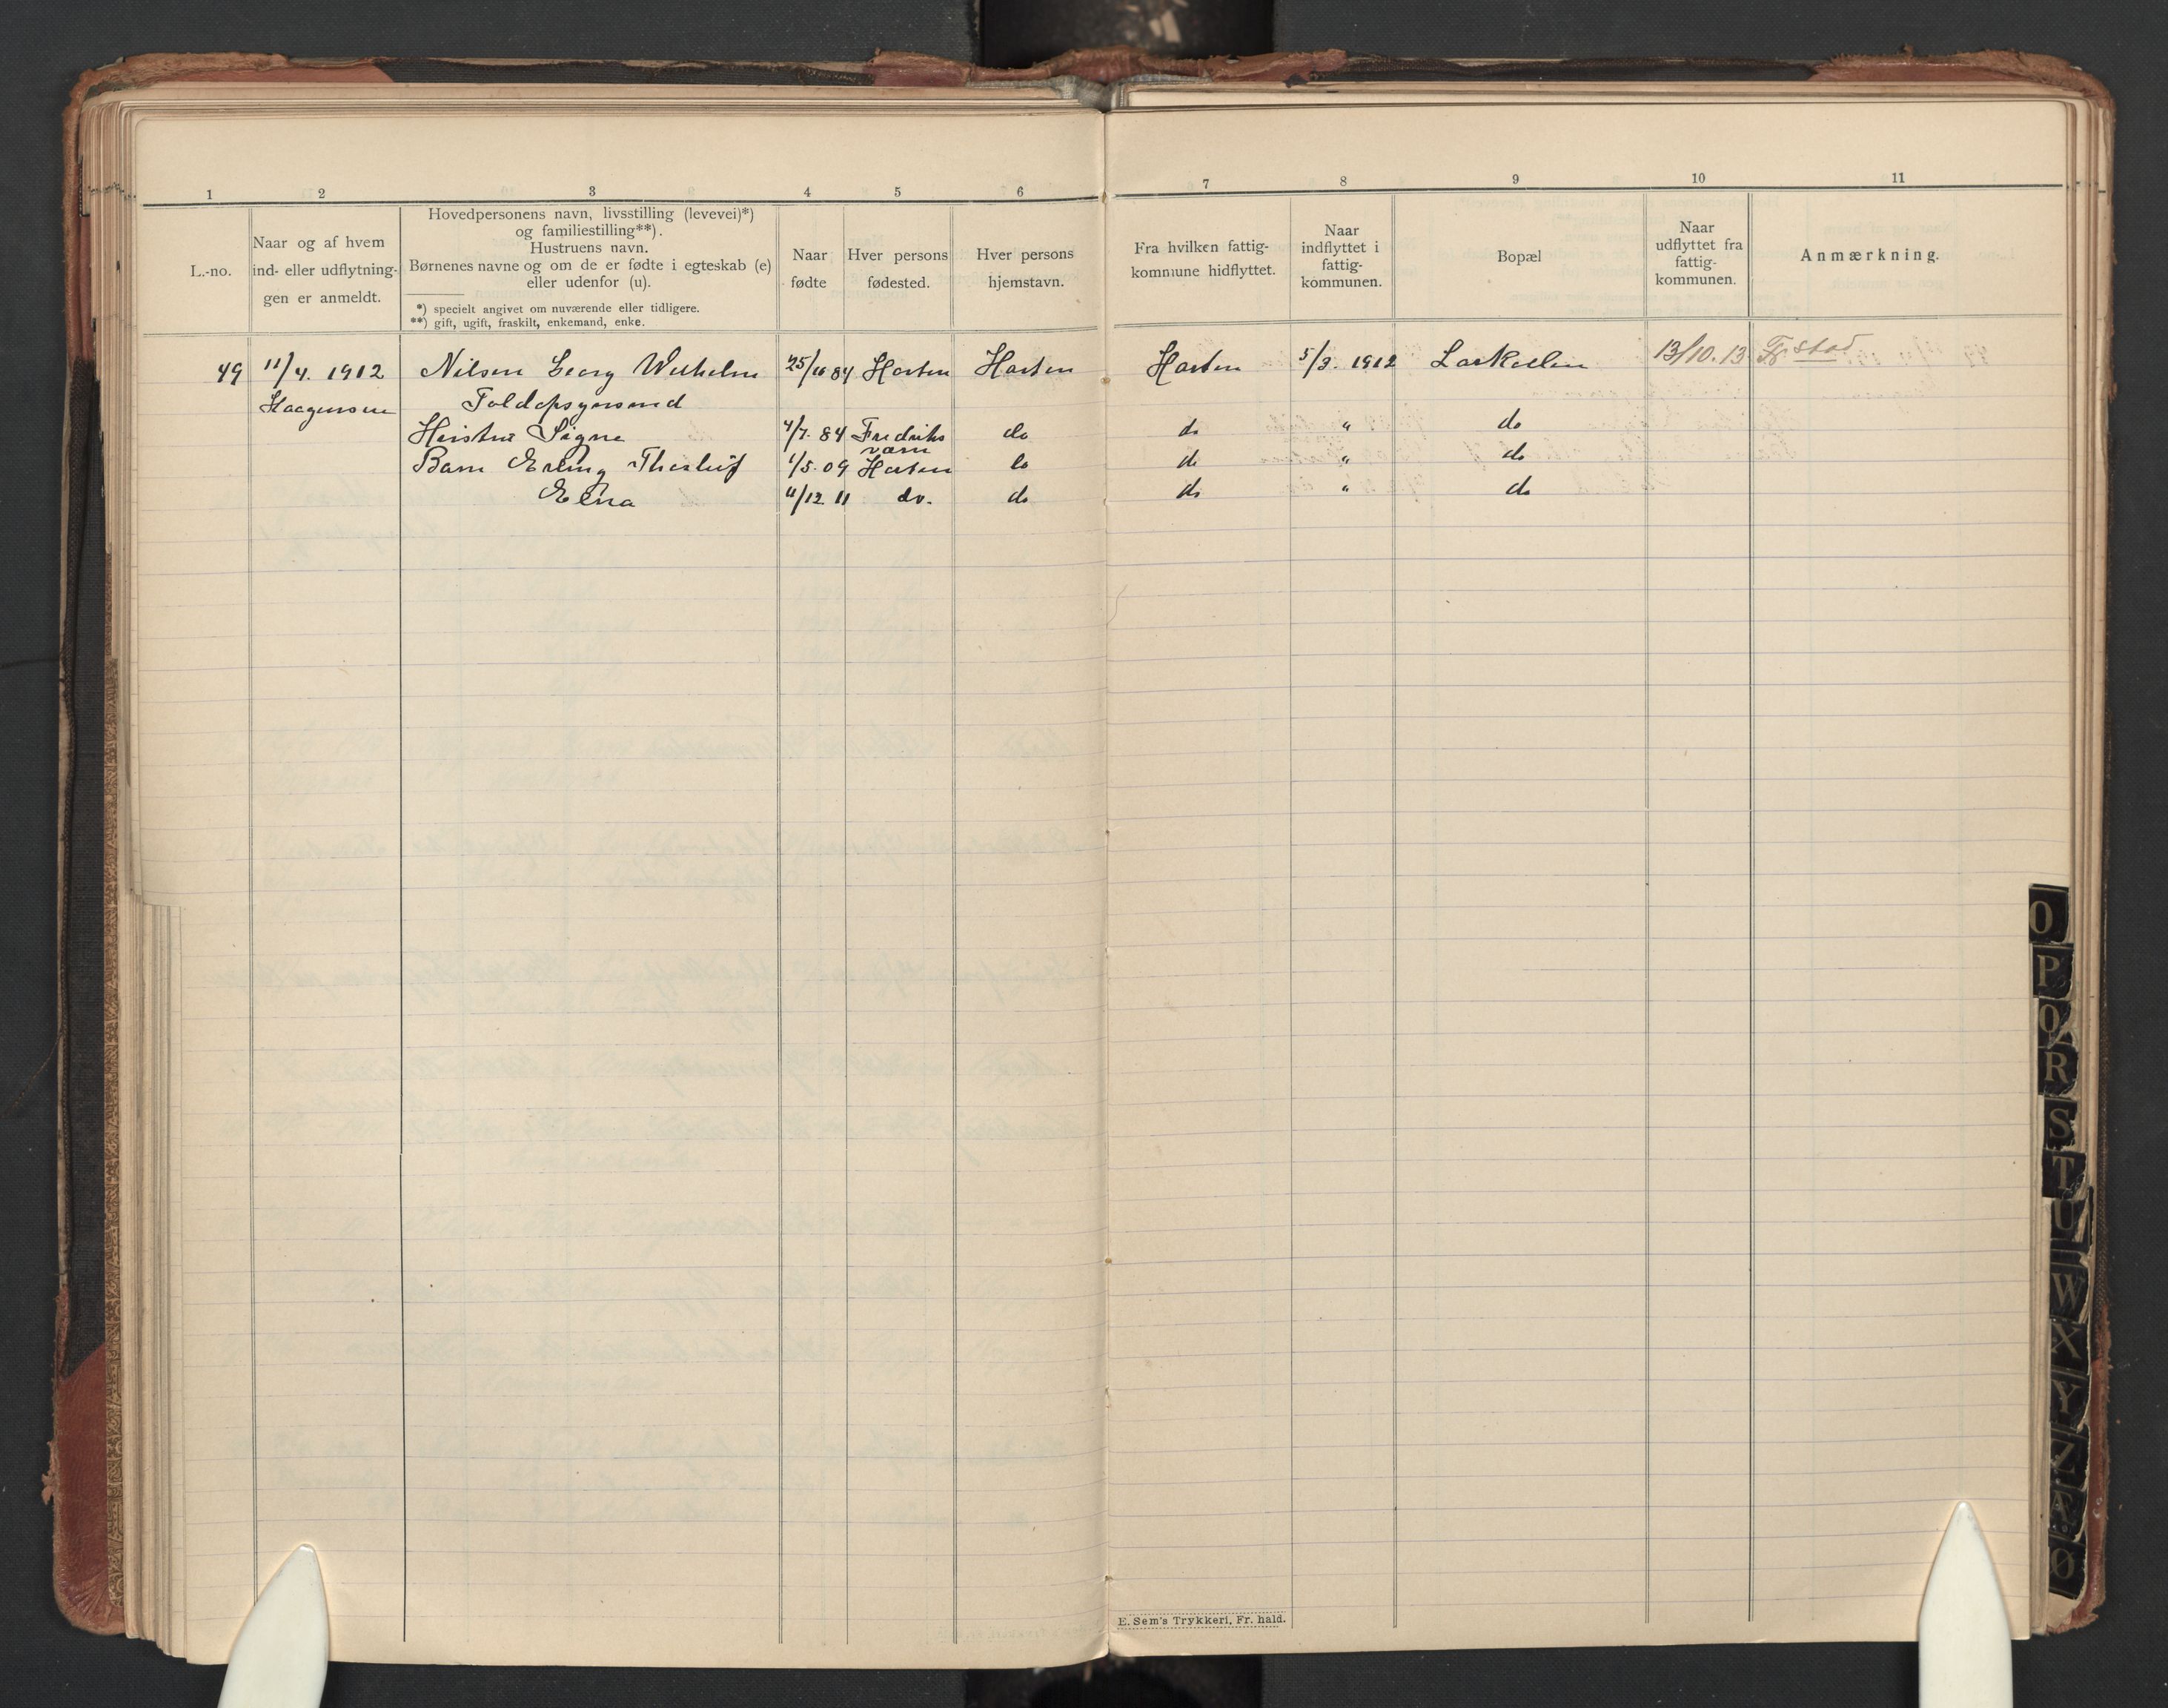 1 2 3 4 5 6 7 8 9 10 11
L.-no.
Naar og af hvem
ind- eller udflytnin-
gen er anmeldt.
Hovedpersonens navn, livsstilling (levevei)*)
og familiestilling**).
Hustruens navn.
Børnenes navne og om de er fødte i egteskab (e)
eller udenfor (u).
*) specielt angivet om nuværende eller tidligere.
**) gift, ugift, fraskilt, enkemand, enke.
Naar
fødte
Hver persons
fødested.
Hver persons
hjemstavn.
Fra hvilken fattig-
kommune hidflyttet.
Naar
indflyttet i
fattig-
kommunen.
Bopæl
Naar
udflyttet fra
fattig-
kommunen.
Anmærkning.
49 11/4. 1912 Nilsen Georg Wilhelm 25/10 84 Horten Horten Horten 5/3. 1912 Larkollen 13/10.13 Fr stad
Haagensen Toldopsynsmand
Hustru Signe 4/7. 84 Fredriks do do " do
værn
Barn Erling Thorleif 1/5. 09 Horten do do " do
Elna 4/12 11 do. do do " do
E. Sem's Trykkeri, Fr. hald.
O
P
Q
R
S
T
U
W
X
Y
Z
Æ
Ø